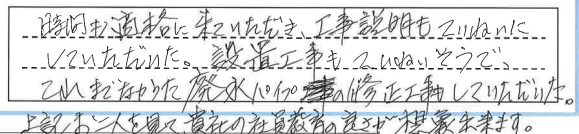 時間も適格に来ていただき、工事説明もていねいに
していただいた。設置工事もていねいそうで、
これまでなかった廃水パイプの修正工事もしていただいた。
上記お二人を見て貴社の社員教育の良さが想像出来ます。